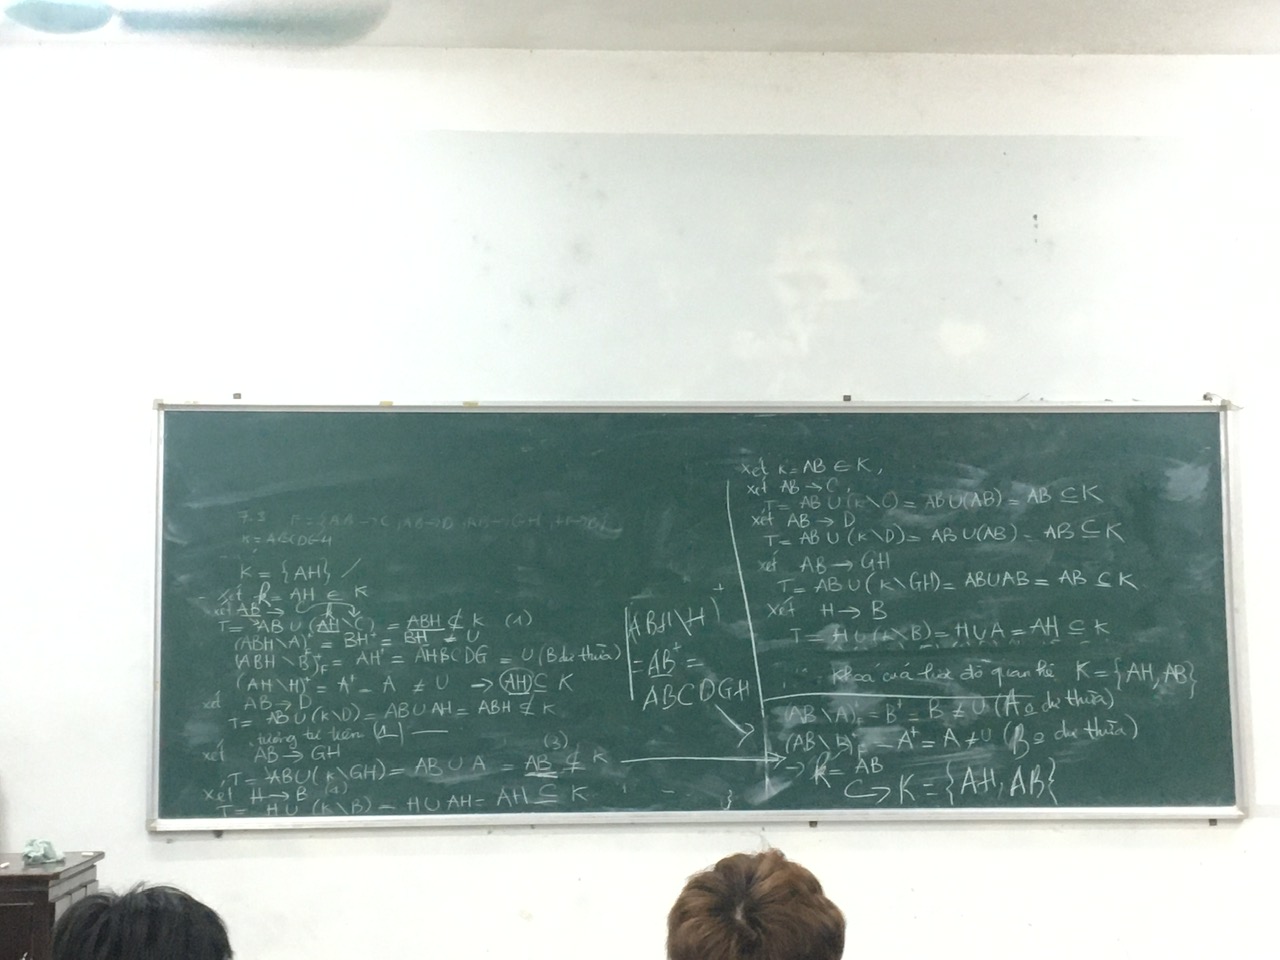 7.3 F = {AB → C, AB → D, AB → GH, H → B}
R = ABCDGH
K = {AH}
- xét k = AH ∈ K
xét AB → C
T = AB ∪ (AH \ C) = ABH ⊄ K (1)
(ABH \ A)⁺ = BH⁺ = BH ≠ U
(ABH \ B)⁺F = AH⁺ = AHBCDG = U (B dư thừa)
(AH \ H)⁺ = A⁺ = A ≠ U → AH ⊆ K
xét AB → D
T = AB ∪ (k \ D) = AB ∪ AH = ABH ⊄ K
tương tự trên (1)
xét AB → GH
T = AB ∪ (k \ GH) = AB ∪ A = AB ⊄ K (3)
xét H → B
T = H ∪ (k \ B) = H ∪ AH = AH ⊆ K
(ABH \ H)⁺
= AB⁺ =
ABCDGH
xét k = AB ∈ K,
xét AB → C,
T = AB ∪ (k \ C) = AB ∪ (AB) = AB ⊆ K
xét AB → D
T = AB ∪ (k \ D) = AB ∪ (AB) = AB ⊆ K
xét AB → GH
T = AB ∪ (k \ GH) = AB ∪ AB = AB ⊆ K
xét H → B
T = H ∪ (k \ B) = H ∪ A = AH ⊆ K
khoá của lược đồ quan hệ K = {AH, AB}
(AB \ A)⁺F = B⁺ = B ≠ U (A o dư thừa)
(AB \ B)⁺F = A⁺ = A ≠ U (B o dư thừa)
→ k = AB
↪ K = {AH, AB}